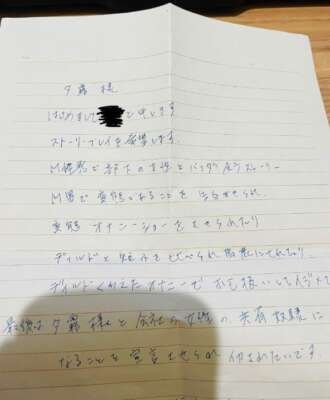 夕霧 様
はじめまして と申します
ストーリープレイを希望します。
M性感で部下の女性とバッタリ会うストーリー
M男で変態であることを告白させられ
変態オナニーショーをさせられたり
ディルドと
ディルドくわえたオナニーで
最後は夕霧様と会社の女性の共有奴隷に
なることを宣言させられ 犯されたいです。